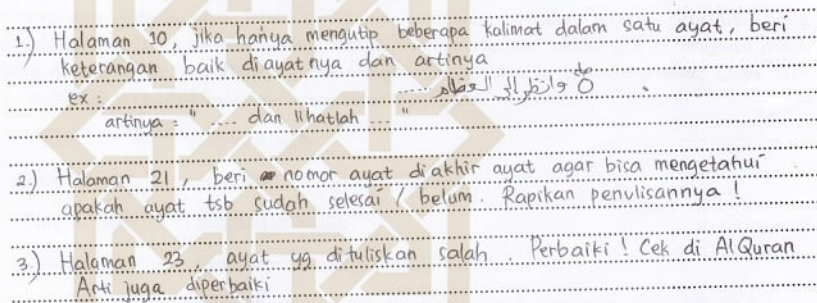 1.) Halaman 10, jika hanya mengutip beberapa kalimat dalam satu ayat, beri
keterangan baik di ayatnya dan artinya
ex : ..... وانظر إلى العظام
artinya : " .... dan lihatlah ... "
2.) Halaman 21, beri nomor ayat di akhir ayat agar bisa mengetahui
apakah ayat tsb sudah selesai / belum. Rapikan penulisannya !
3.) Halaman 23, ayat yg dituliskan salah. Perbaiki ! Cek di AlQuran
Arti juga diperbaiki